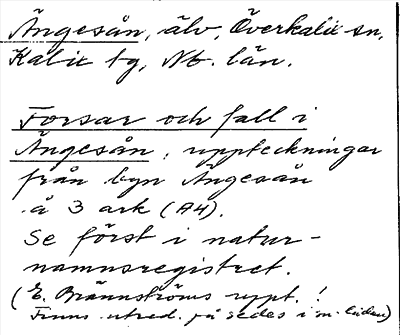 Ängesån, älv, Överkalix sn,
Kalix tg, Nb. län.
Forsar och fall i
Ängesån, uppteckningar
från byn Ängesån
å 3 ark (A4).
Se först i natur-
namnsregistret.
(E. Brännströms uppt.!
Finns utred. på sedes i m. lådan)